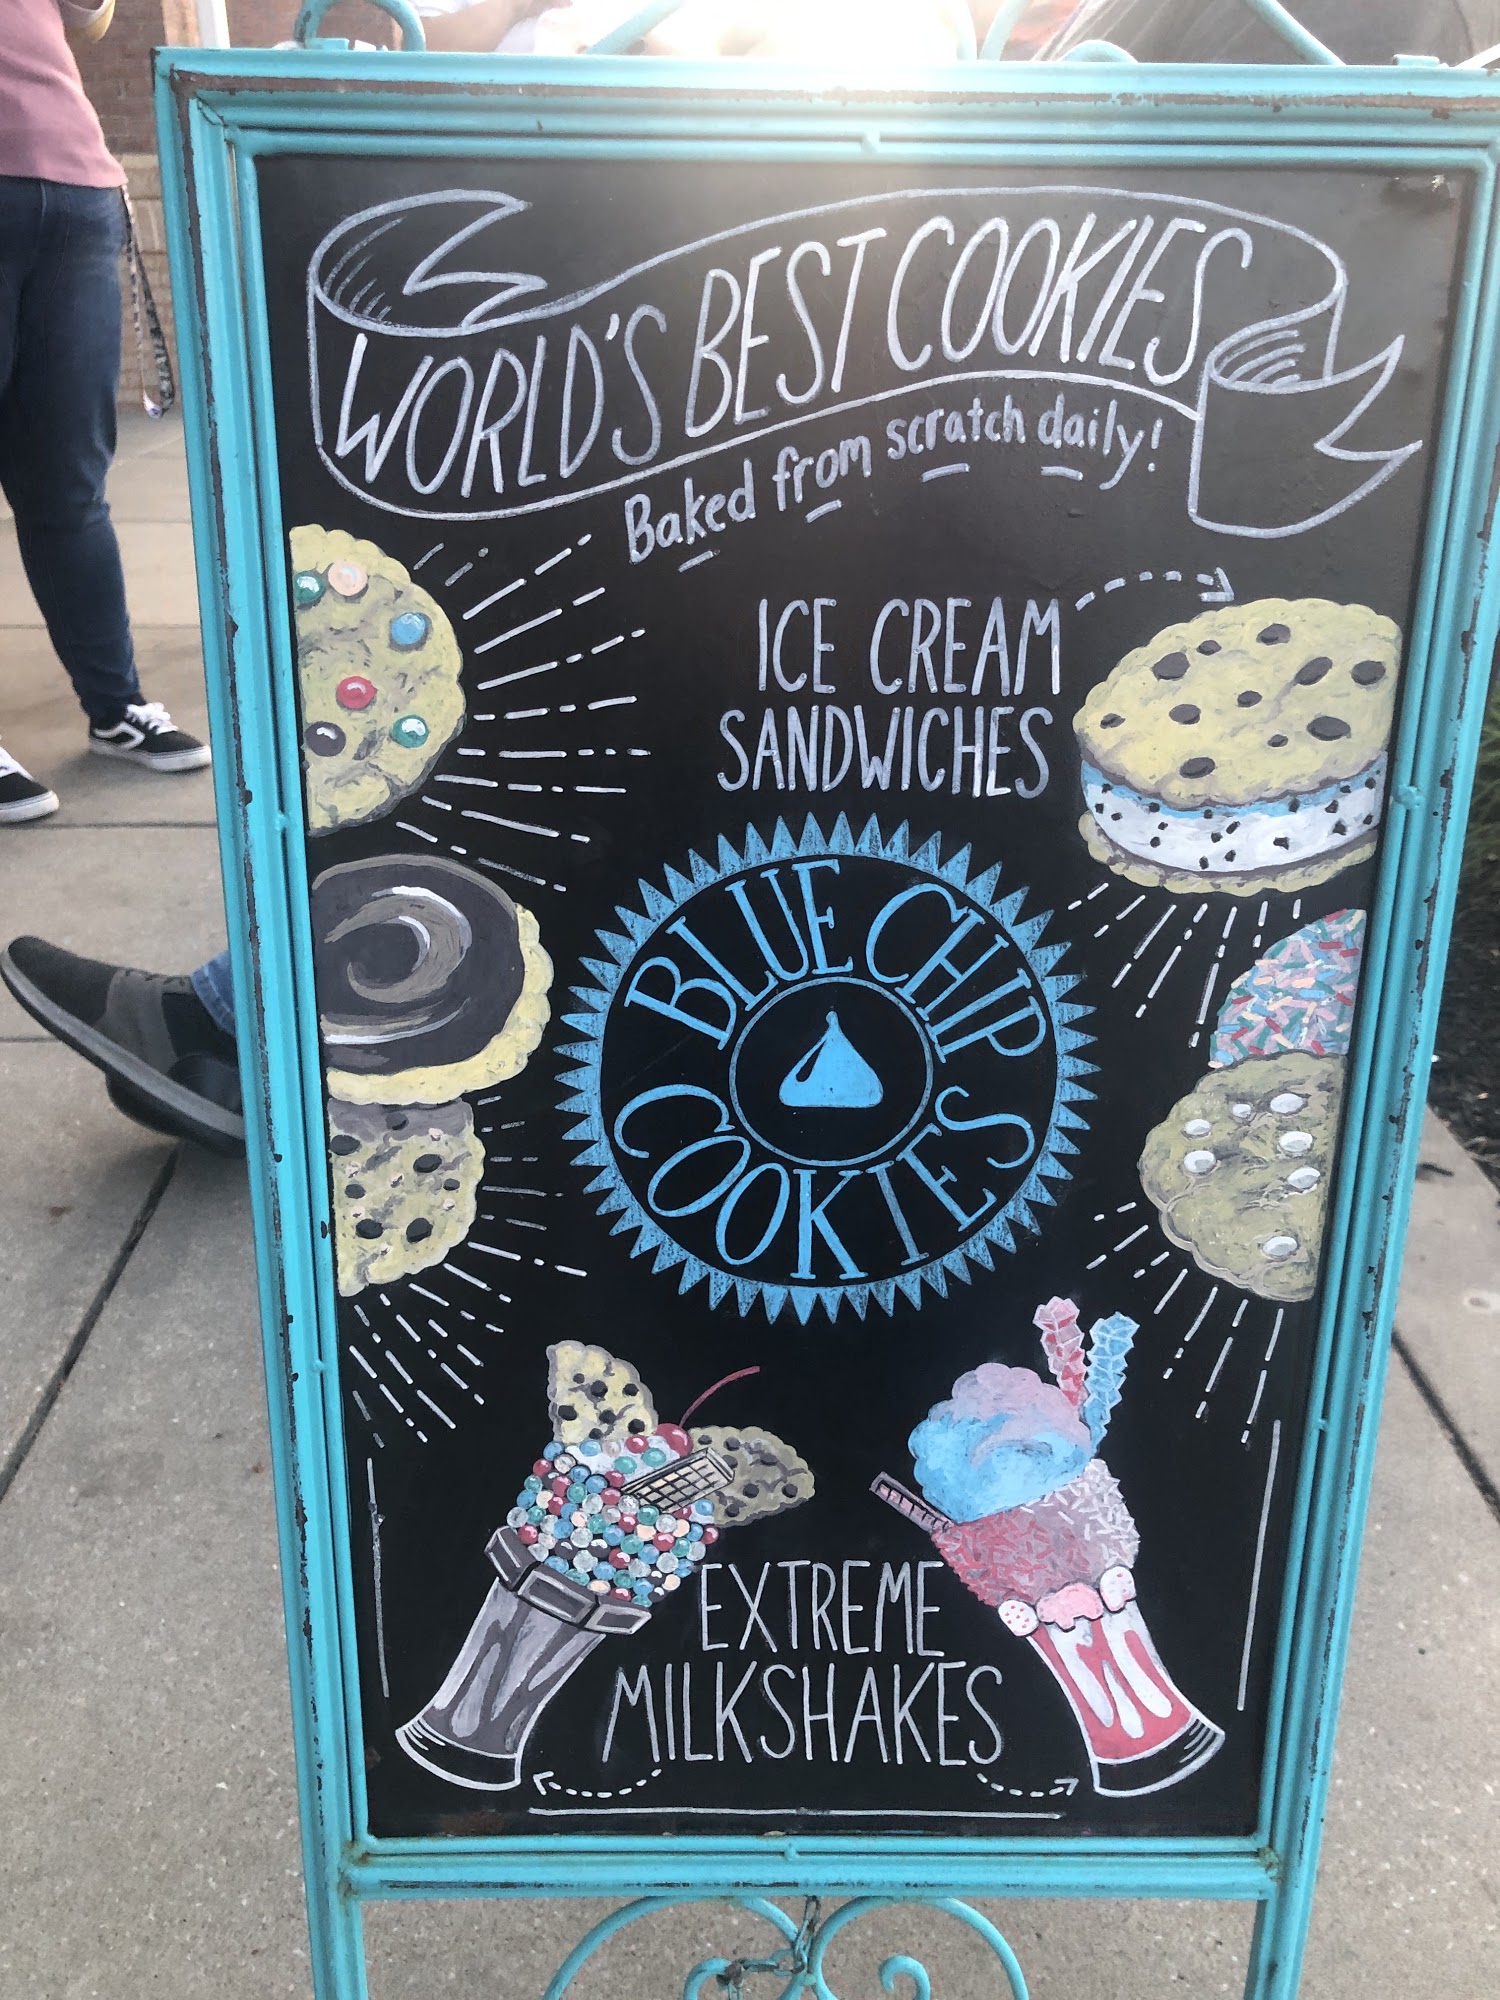 WORLD'S BEST COOKIES
Baked from scratch daily!
ICE CREAM
SANDWICHES
BLUE CHIP
COOKIES
EXTREME
MILKSHAKES